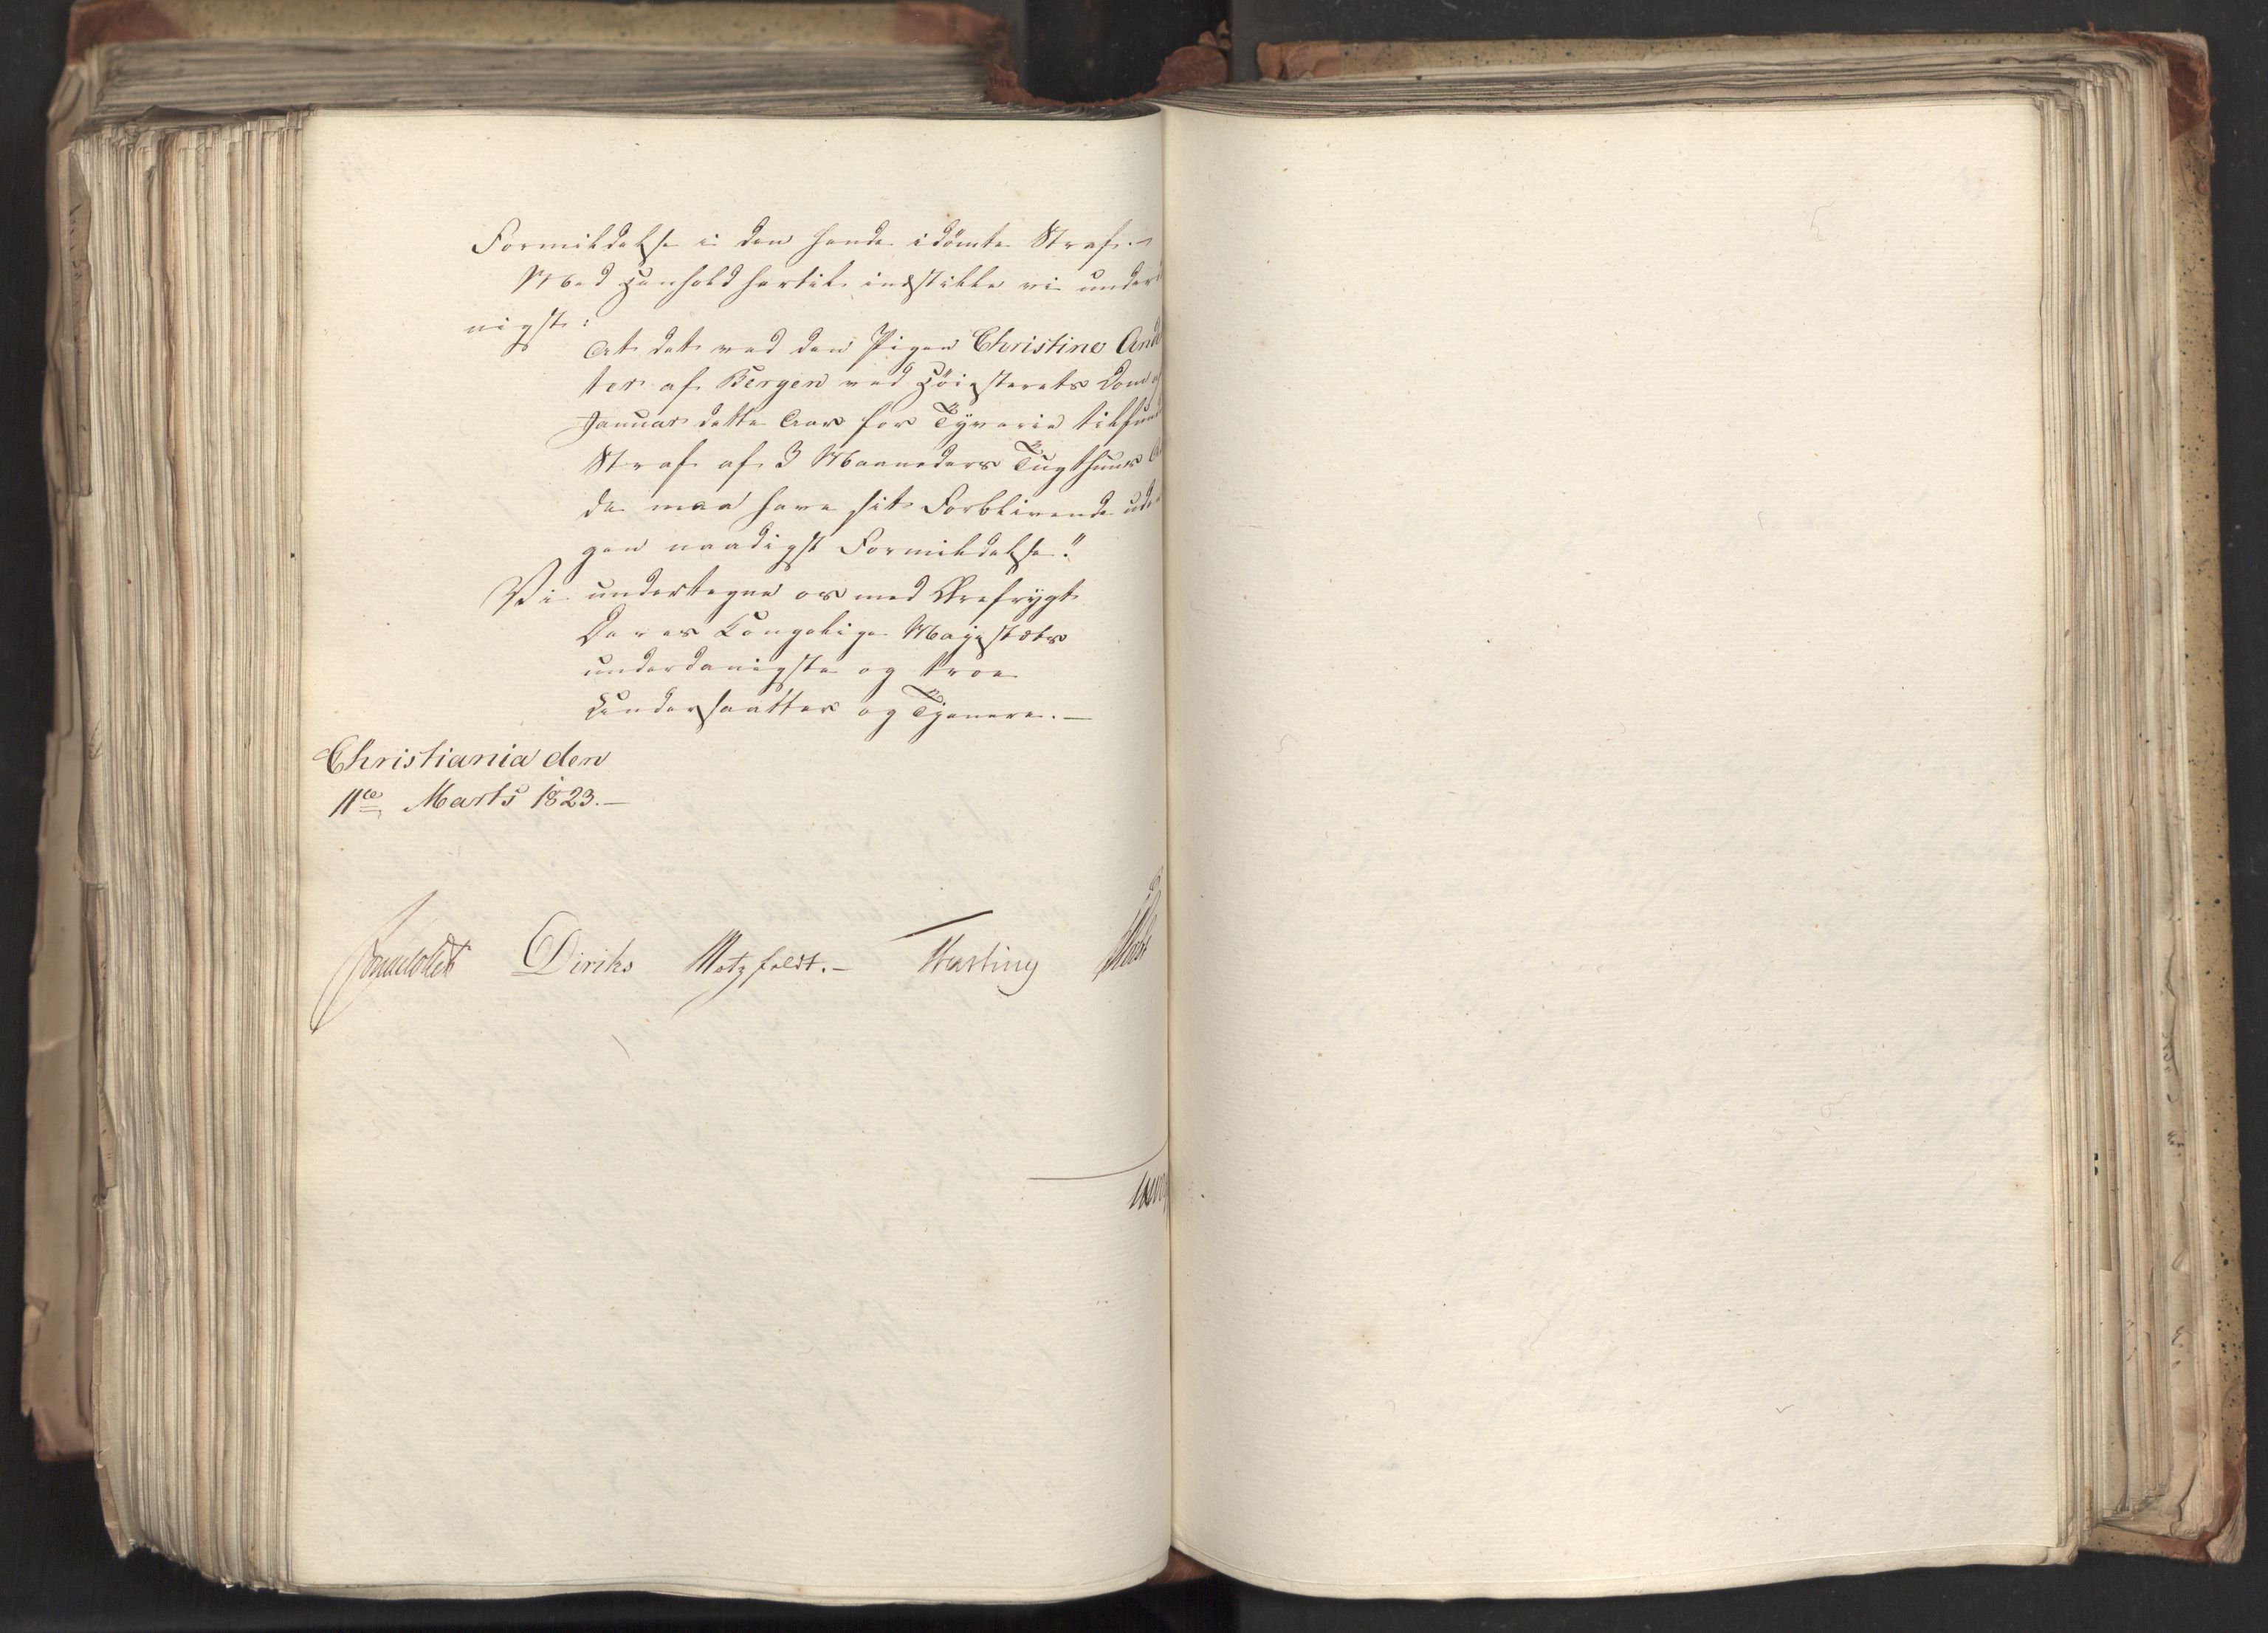 Formildelse i den hende idömte Straf.
Med Henhold hertil indstille vi under
nigst:
At det ved den Pigen Christine And
ter af Bergen ved Höiesterets Dom
Januar dette Aar for Tyverie tilfund
Straf af 3 Maaneders Tugthuus
de maa have sit Forblivende uden
gen naadigst Formildelse."
Vi undertegne os med Ærefrygt
Deres Kongelige Majestæts
underdanigste og troe
Undersaatter og Tjenere. —
Christiania den
11te Marts 1823. —
Diriks Motzfeldt. —